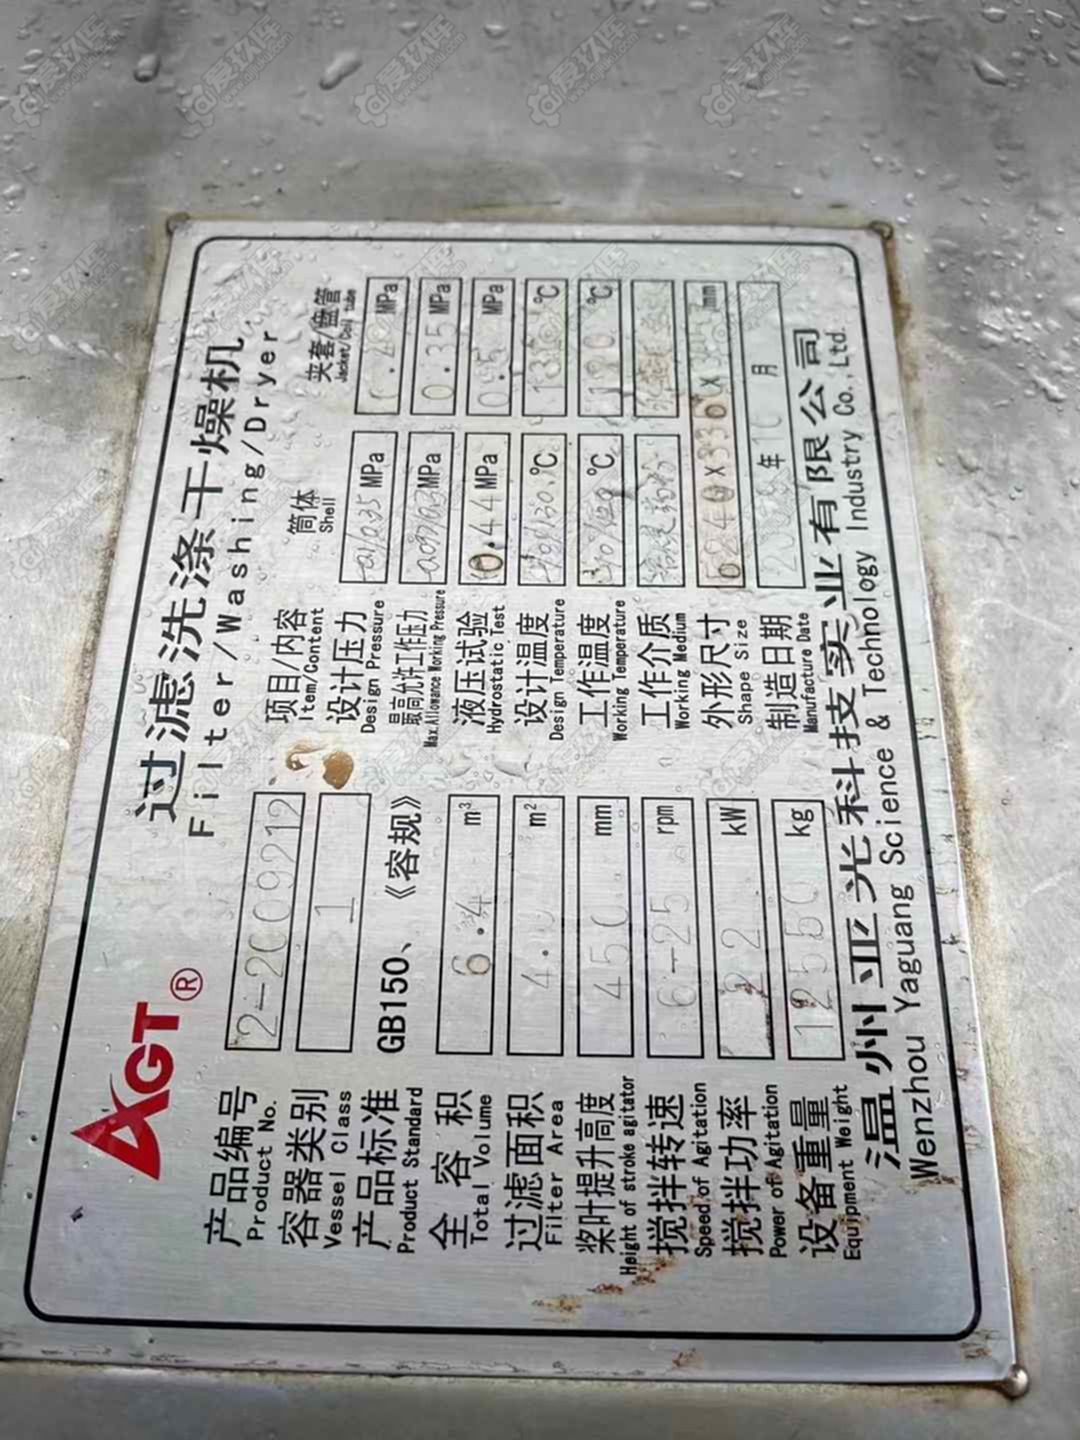 AGT®
过滤洗涤干燥机
Filter/Washing/Dryer
产品编号 2-2009212
Product No.
容器类别 1
Vessel Class
产品标准 GB150、《容规》
Product Standard
全容积 6.4 m³
Total Volume
过滤面积 4.0 m²
Filter Area
桨叶提升高度 450 mm
Height of stroke agitator
搅拌转速 6-25 rpm
Speed of Agitation
搅拌功率 22 kW
Power of Agitation
设备重量 12550 kg
Equipment Weight
项目/内容 筒体 夹套/盘管
Item/Content Shell Jacket/Coil tube
设计压力 MPa MPa
Design Pressure
最高允许工作压力 MPa 0.35 MPa
Max.Allowance Working Pressure
液压试验 0.44 MPa 0.5 MPa
Hydrostatic Test
设计温度 ℃ ℃
Design Temperature
工作温度 ℃ ℃
Working Temperature
工作介质
Working Medium
外形尺寸 mm
Shape Size
制造日期 年10月
Manufacture Date
温州亚光科技实业有限公司
Wenzhou Yaguang Science & Technology Industry Co.,Ltd.
爱玖库